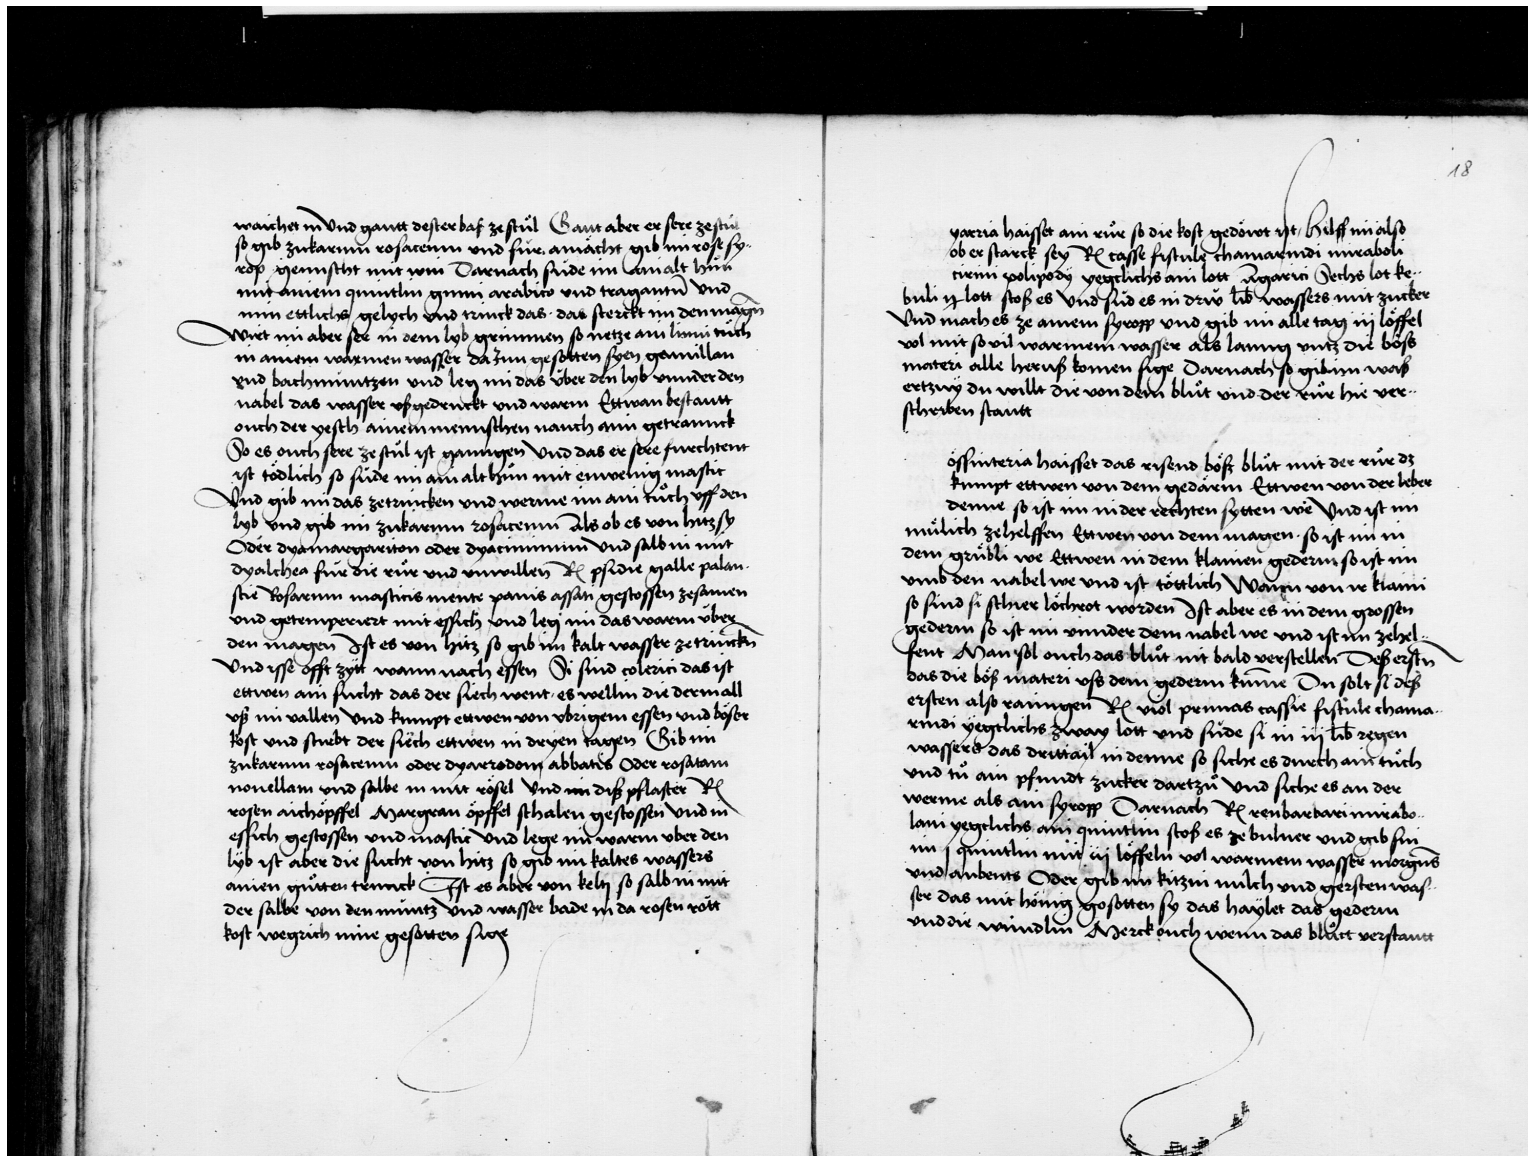 waichet in Vnd gantt dester baß ze stuͦl Gant aber er sere ze stuͦl
so gib zukarum rosaceum und für amächt gib im rose sy-
rop gemischt mit win Darnach süde im ain alt hůn
mit ainem quintlin gumi arabico und tragantū Vnd
nim ettlichs gelych und trinck das das sterckt im den magn̄
Wirt im aber ser in dem lyb grimmen so netze ain linin tůch
in ainem warmen wasser da Inn gesotten syen gamillan
vnd bachmüntzen und leg im das über den lyb vnnder den
nabel das wasser vßgedruckt und warm Ettwan bestantt
ouch der yesch ainem mennschen nauch aim getranck
So es ouch sere ze stůl ist ganngen Vnd das er sere furchtent
ist tödlich so süde im ain alt hůn mit ein wenig mastic
Vnd gib im das ze trincken und werme im ain tůch vff den
lyb und gib im zukarum rosaceum Als ob es von hitz sy
Oder dyamargariton oder dyaciminum und salb in mit
dyalchea für die růr und vnwillen R psidie galle palau-
stie Rosarum masticis mente panis assati gestossen zesamen
und getemperiert mit essich und leg im das warm über
den magen Ist es von hitz so gib im kalt wasser ze trinckn̄
Vnd isse offt zytt wann nach essen Si sind colerici das ist
ettwen ain sucht das der siech went es wellin die derm all
vß im vallen Vnd kumpt ettwen von vbrigem essen und böser
kost und stirbt der siech ettwen in dryen tagen Gib im
zukarum rosaceum oder dyarrodom abbatis Oder rosatam
nouellam und salbe in mit rösel Vnd im diß pflaster R
rosen aichöpffel Margran öpffel schalen gestossen Vnd in
essich gestossen und mastic Vnd lege im warm vber den
lyb ist aber die sucht von hitz so gib im kaltes wassers
ainen gůtten trunck Ist es aber von kelti so salb in mit
der salbe von den müntz Vnd wasser bade in da rosen rött
kost wegrich mine gesotten sige
18
yarria haisset ain růr so die kost gedöwt ist Hilff im also
ob er starck sey R casse fistule thamarindi miraboli
cirini polipody yegclichs ain lott Agarici Sechs lot ke-
buli ij lott stoß es Vnd süd es in drw lib wassers mit zucker
Vnd mach es ze ainem syropp und gib im alle tag iij löffel
vol mit so vil warmem wasser als lanng vntz die böß
materi alle heruß komen sige Darnach so gib im waß
ertzny du willt die von dem blůt und der růr hie ver-
schriben stantt
össinteria haisset das risend bößt blůt mit der růr dz
kumpt ettwen von dem gedärm Ettwen von der leber
denne so ist im in der rechten sytten we Vnd ist im
mülich zehelffen Ettwen von dem magen so ist im in
dem grübli we Ettwen in dem klainen gederm so ist im
vmb den nabel we und ist töttlich Wann von ir klaini
so sind si schier löchrot worden Ist aber es in dem grossen
gederm so ist im vnnder dem nabel we und ist im zehel-
fent Man sol ouch das blůt nit bald verstellen Deß erstn̄
das die böß materi vß dem gederm kume Du solt si deß
ersten also rainigen R viol prunas cassie fistule thama-
rindi yegclichs zway lott und süde si in iij lib regen
wassers das drittail in denne so siche es durch ain tůch
und tů ain pfundt zucker dartzů Vnd siche es an der
werme als ain syropp Darnach R reubarbari mirabo-
lani yegclichs ain quintlin stoß es ze buluer und gib sin
im j quintlin mit iij löffeln vol warmem wasser morgens
und aubents Oder gib im kitzin milch und gersten was-
ser das mit höuig gosotten sy das haylet das gederm
und die wundlin Merck ouch wenn das blůtt verstantt